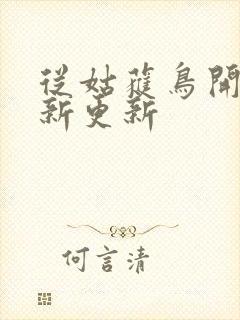 從姑蘿鳥開
新更新
何言清